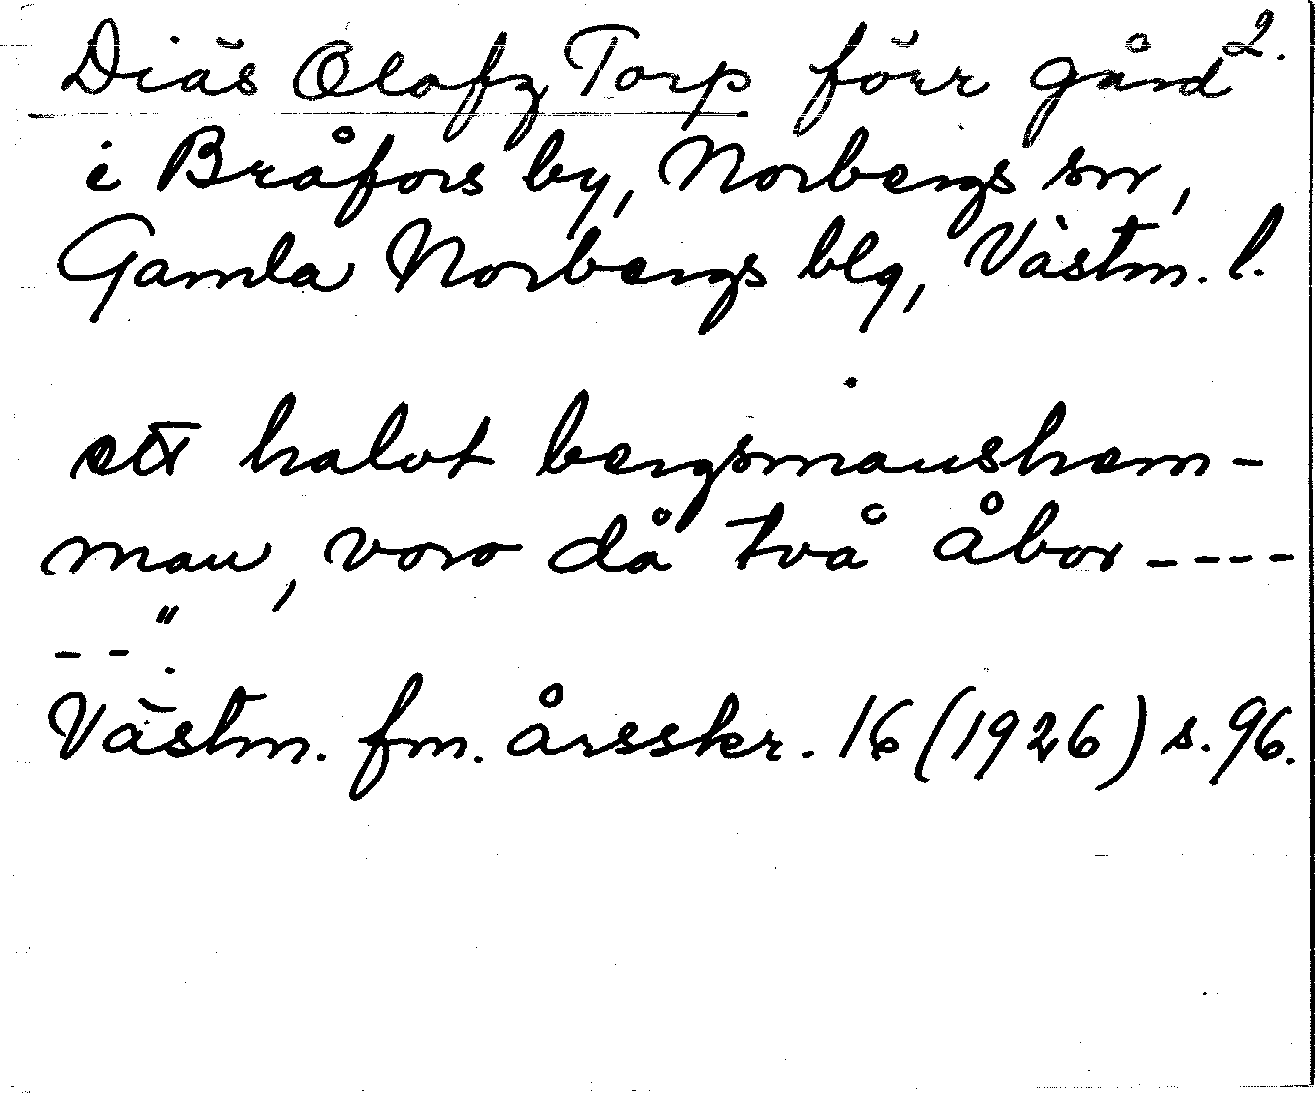 Diäs Olafz Torp förr gård 2.
i Bråfors by, Norbergs sn,
Gamla Norbergs blg, Västm. l.
ett halvt bergsmanshem-
man, voro då två åbor ----
--".
Västm. fm. årsskr. 16 (1926) s. 96.